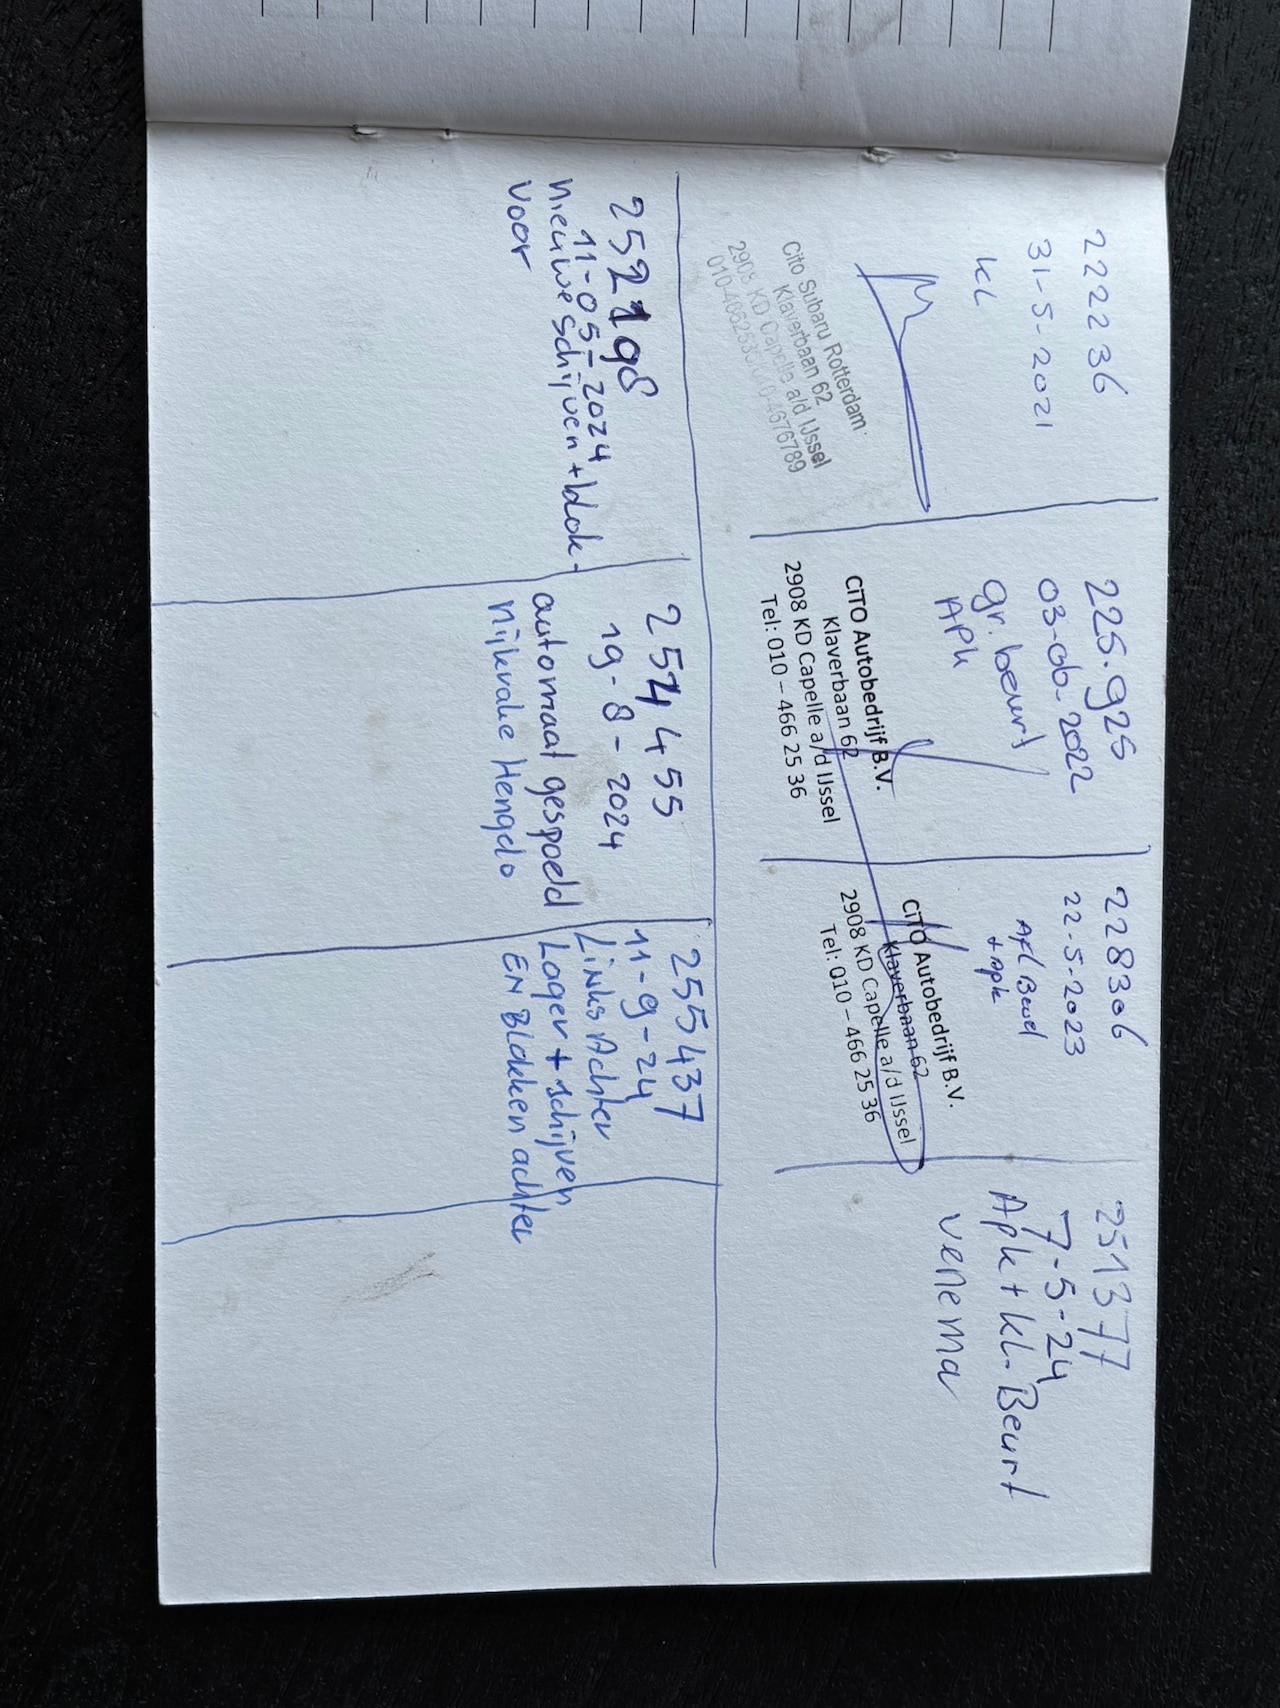 222236
31-5-2021
KL
Cito Subaru Rotterdam
Klaverbaan 62
2908 KD Capelle a/d IJssel
225.925
03-06-2022
gr. beurt
APK
CITO Autobedrijf B.V.
Klaverbaan 62
2908 KD Capelle a/d IJssel
Tel: 010 – 466 25 36
228306
22-5-2023
+ apk
CITO Autobedrijf B.V.
Klaverbaan 62
2908 KD Capelle a/d IJssel
Tel: 010 – 466 25 36
251377
7-5-24
Apk + kl. Beurt
venema
252198
11-05-2024
Nieuwe schijven + blok-
voor
254455
19-8-2024
automaat gespoeld
Nijkrake Hengelo
255437
11-9-24
Links Achter
Lager + schijven
EN Blokken achter